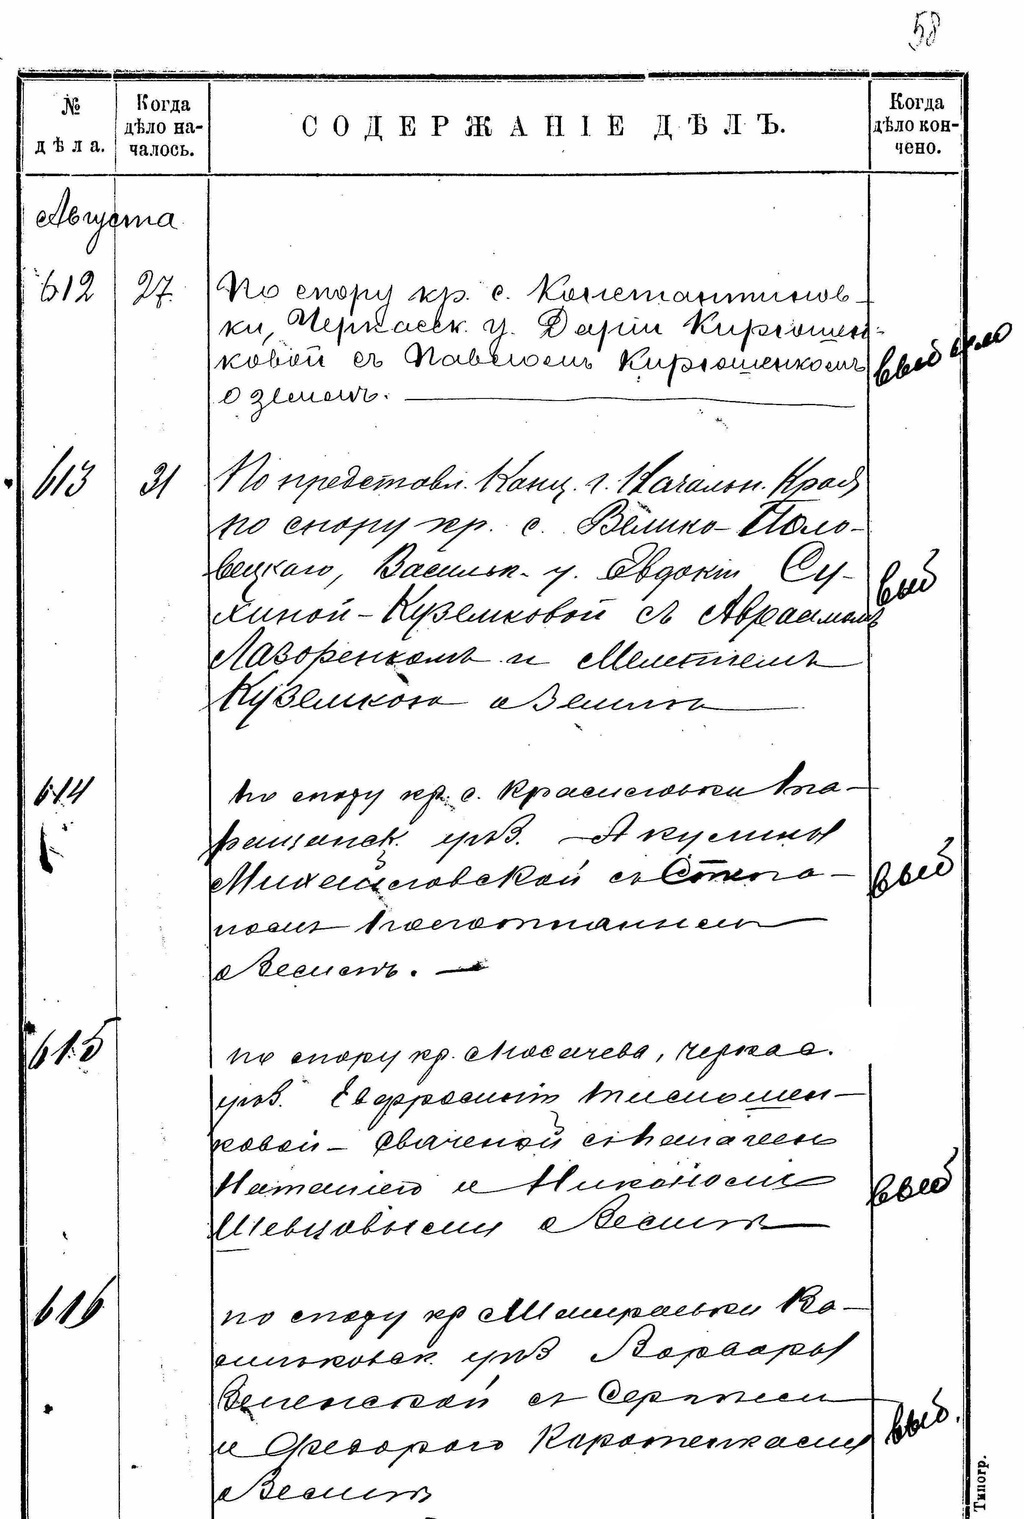 58
№ дѣла.
Когда дѣло началось.
СОДЕРЖАНІЕ ДѢЛЪ.
Когда дѣло кончено.
Августа
612 27 По спору кр. с. Константинов-
ки, Черкасск. у. Даріи Кирюшен-
ковой съ Павломъ Кирюшенкомъ
о землѣ.
выб
613 31 По представл. Канц. г. Начальн. Края
по спору кр. с. Велико-Поло-
вецкаго, Васильк. у. Евдокіи Су-
хиной-Куземковой съ Авраамомъ
Лазоренкомъ и Мелетіемъ
Куземкою о землѣ
выб
614 по спору кр. с. Красиловки Та-
ращанск. уѣз. Акулины
Михайловской съ
о землѣ.
выб
615 по спору кр. Мосачева, Черкас.
уѣз. Евфросиніи Тимошен-
ковой-
Наталіею и
Шевцовыми о землѣ
выб
616 по спору кр Ва-
сильковск. уѣз Варвары
Зеленской съ Сергѣем
и Федорою
о землѣ
выб.
Типогр.